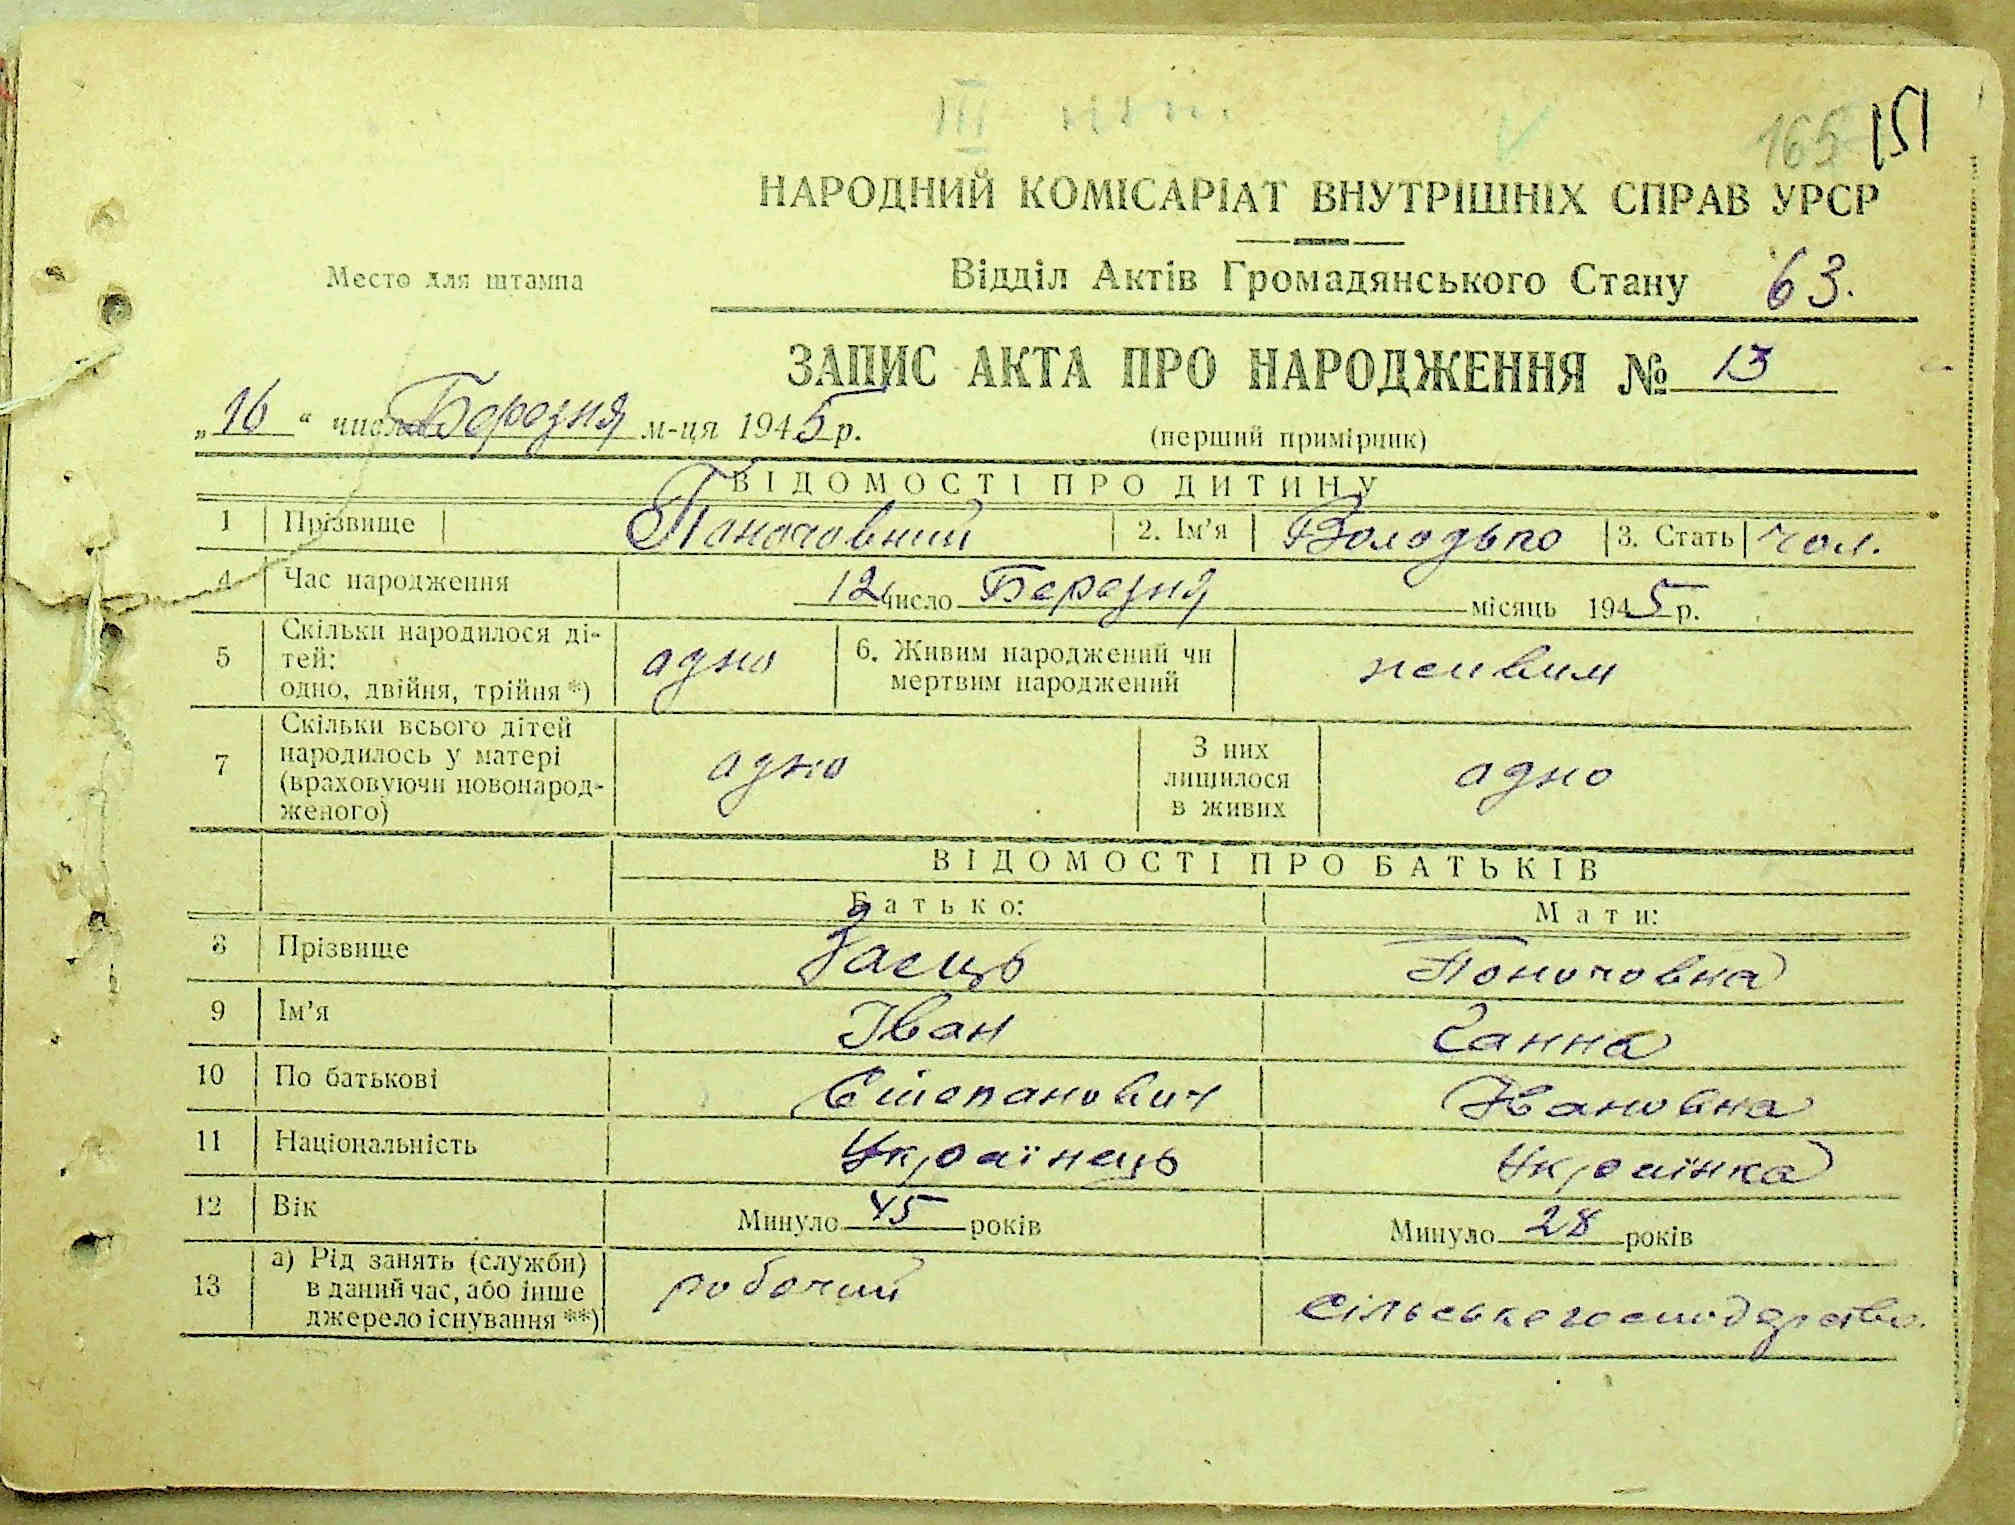 III
165 151
НАРОДНИЙ КОМІСАРІАТ ВНУТРІШНІХ СПРАВ УРСР
Место для штампа
Відділ Актів Громадянського Стану 63.
ЗАПИС АКТА ПРО НАРОДЖЕННЯ № 13
„16“ числа Березня м-ця 1945 р. (перший примірник)
ВІДОМОСТІ ПРО ДИТИНУ
1 Прізвище Поночовний 2. Ім'я Володько 3. Стать чол.
4 Час народження 12 число Березня місяць 1945 р.
5 Скільки народилося ді-
тей:
одно, двійня, трійня *) одно 6. Живим народжений чи
мертвим народжений живим
7 Скільки всього дітей
народилось у матері
(враховуючи новонарод-
женого) одно З них
лишилося
в живих одно
ВІДОМОСТІ ПРО БАТЬКІВ
Батько: Мати:
8 Прізвище Заєць Поночовна
9 Ім'я Іван Ганна
10 По батькові Степанович Івановна
11 Національність Українець Українка
12 Вік Минуло 45 років Минуло 28 років
13 а) Рід занять (служби)
в даний час, або інше
джерело існування **) робочий сільськегосподарство.